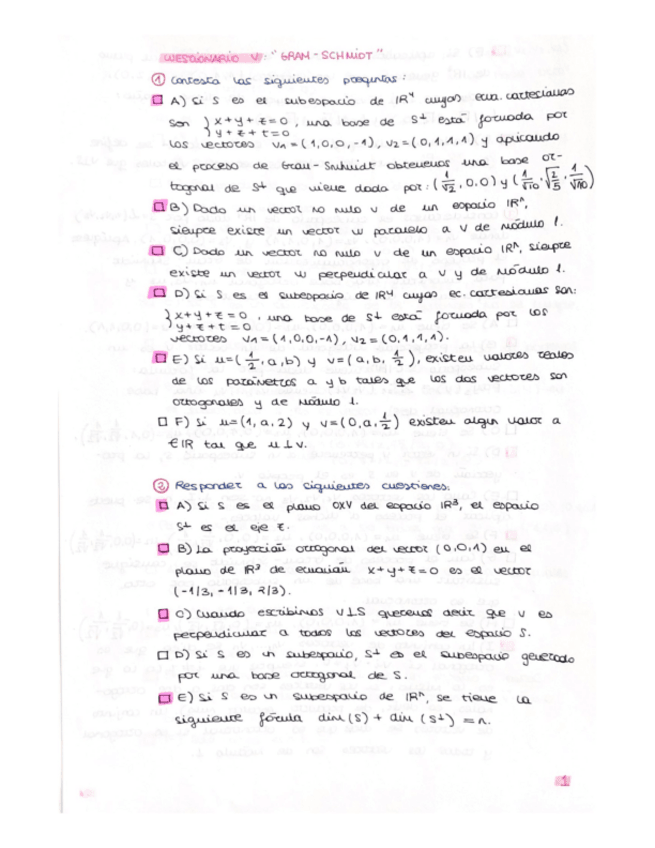 CUESTIONARIO V "GRAM-SCHMIDT"
① Contesta las siguientes preguntas:
A) Si S es el subespacio de IR⁴ cuyas ecua. cartesianas
son { x+y+z=0 , una base de S⊥ está formada por
y+z+t=0
los vectores v₁=(1,0,0,-1), v₂=(0,1,1,1) y aplicando
el proceso de Gram-Snhmidt obtenemos una base or-
togonal de S⊥ que viene dada por: (1/√2, 0,0) y (1/√10, √2/5, 1/√10)
B) Dado un vector no nulo v de un espacio IRⁿ,
siempre existe un vector w paralelo a v de módulo 1.
C) Dado un vector no nulo v de un espacio IRⁿ, siempre
existe un vector w perpendicular a v y de módulo 1.
D) Si S es el subespacio de IR⁴ cuyas ec. cartesianas son:
{ x+y+z=0 , una base de S⊥ está formada por los
y+z+t=0
vectores v₁=(1,0,0,-1), v₂=(0,1,1,1).
E) Si u=(1/2,a,b) y v=(a,b,1/2), existen valores reales
de los parámetros a y b tales que los dos vectores son
ortogonales y de módulo 1.
F) Si u=(1,a,2) y v=(0,a,1/2) existen algun valor a
∈IR tal que u⊥v.
② Responder a las siguientes cuestiones:
A) Si S es el plano OXY del espacio IR³, el espacio
S⊥ es el eje z.
B) La proyección ortogonal del vector (0,0,1) en el
plano de IR³ de ecuación x+y+z=0 es el vector
(-1/3, -1/3, 2/3).
C) Cuando escribimos v⊥S queremos decir que v es
perpendicular a todos los vectores del espacio S.
D) Si S es un subespacio, S⊥ es el subespacio generado
por una base ortogonal de S.
E) Si S es un subespacio de IRⁿ, se tiene la
siguiente fórmula dim(S) + dim (S⊥) = n.
1